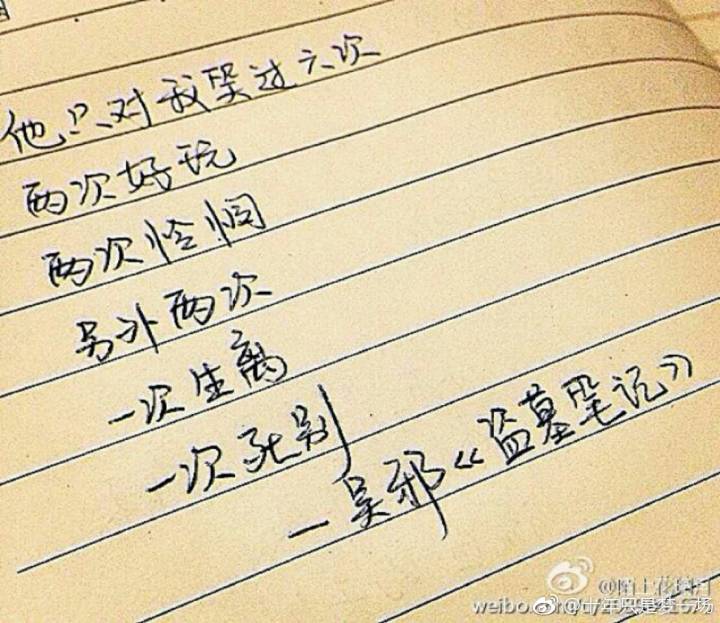 他只对我哭过六次
两次好玩
两次恰悯
另外两次
一次生离
一次死别
—吴邪《盗墓笔记》
@陌上花
weibo.com/
@廿年只是梦一场